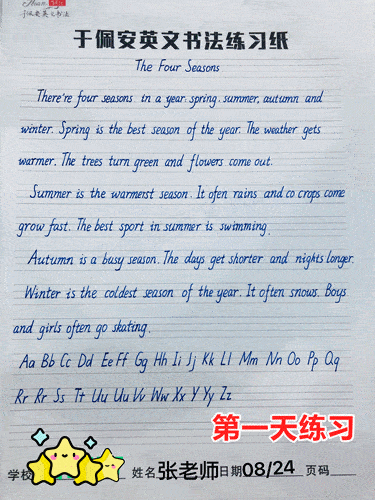 于佩安英文书法
于佩安英文书法练习纸
The Four Seasons
There're four seasons in a year. spring. summer, autumn and
winter. Spring is the best season of the year. The weather gets
warmer. The trees turn green and flowers come out.
Summer is the warmerst season. It ofen rains and co crops come
grow fast. The best sport in summer is swimming.
Autumn is a busy season. The days get shorter and nights longer.
Winter is the coldest season of the year. It often snows. Boys
and girls often go skating.
Aa Bb Cc Dd Ee Ff Gg Hh Ii Jj Kk Ll Mm Nn Oo Pp Qq
Rr Rr Ss Tt Uu Uu Vv Ww Xx Yy Zz
第一天练习
学校 姓名 张老师 日期 08/24 页码